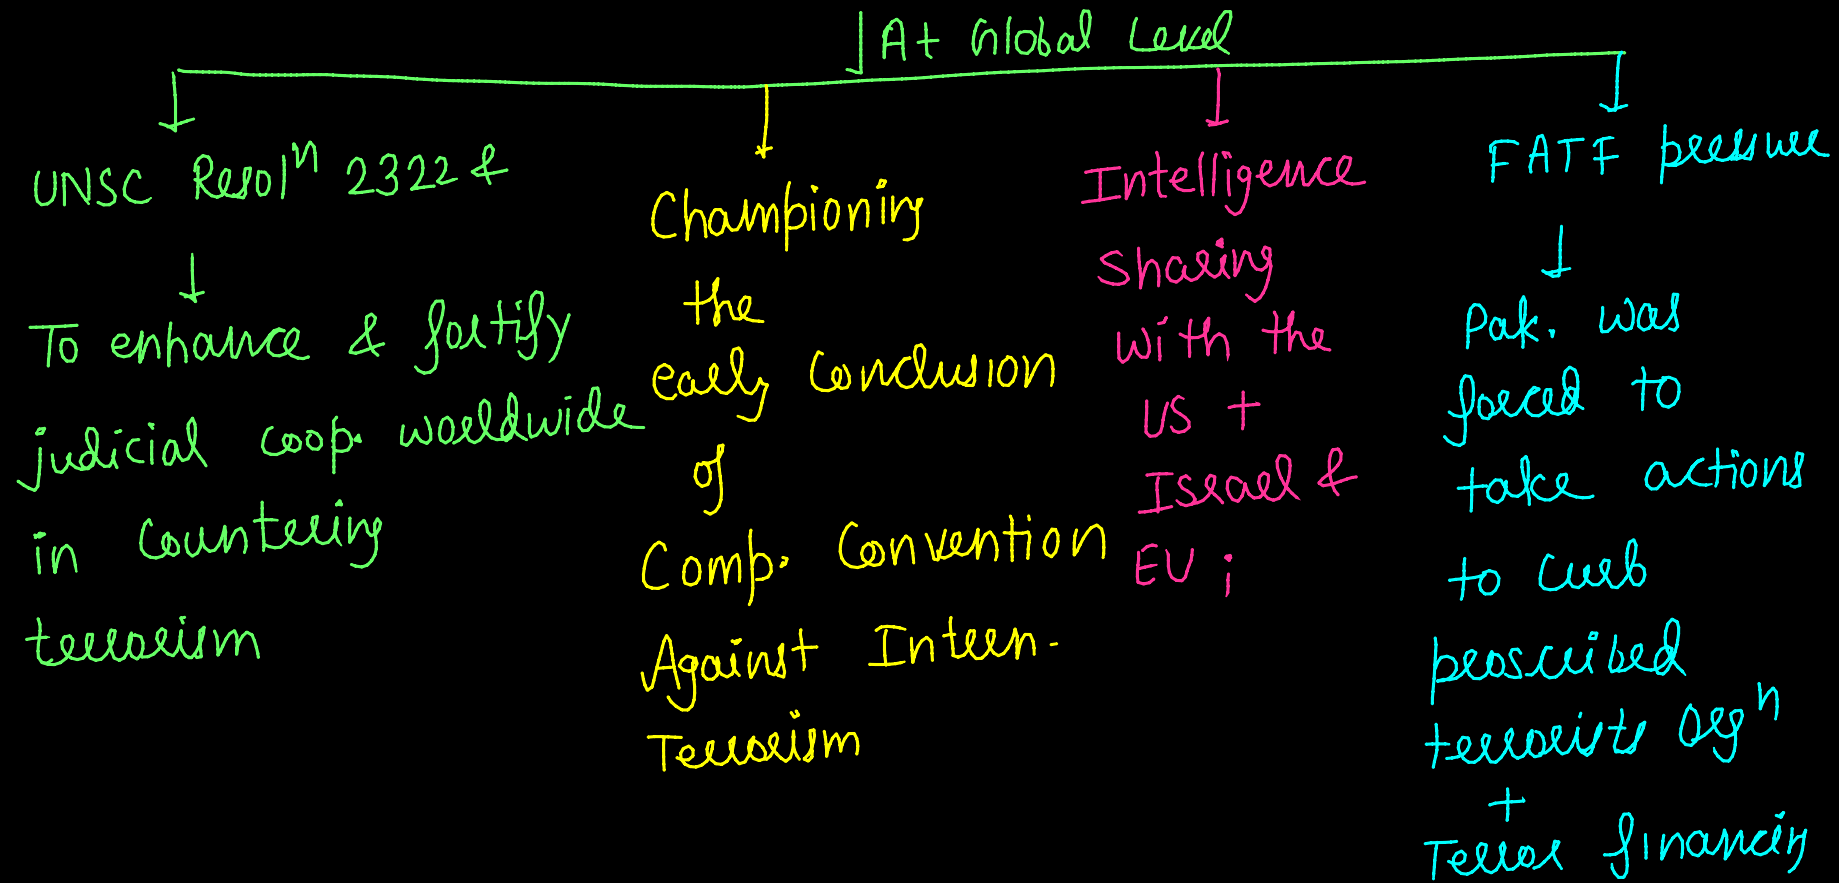 At Global Level
UNSC Resolⁿ 2322 &
To enhance & fortify
judicial coop. worldwide
in countering
terrorism
Championing
the
early conclusion
of
Comp. Convention
Against Intern.
Terrorism
Intelligence
Sharing
with the
US +
Israel &
EU ;
FATF pressure
Pak. was
forced to
take actions
to curb
proscribed
terrorists orgⁿ
+
Terror financing